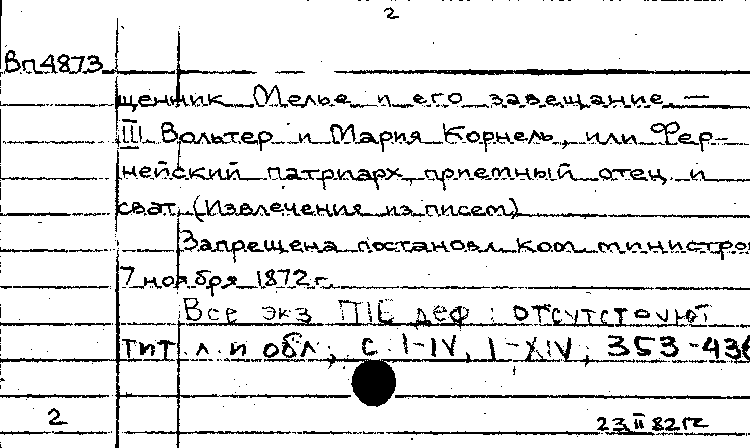 2
Вп4873
щенник Мелье и его завещание. —
III Вольтер и Мария Корнель, или Фер-
нейский патриарх, приемный отец и
сват. (Извлечения из писем)
Запрещена постановл. ком. министров
7 ноября 1872 г.
Все экз ПБ деф: отсутствуют
тит. л. и обл., с. I-IV, I-XIV, 353-436
2
23 II 82 г